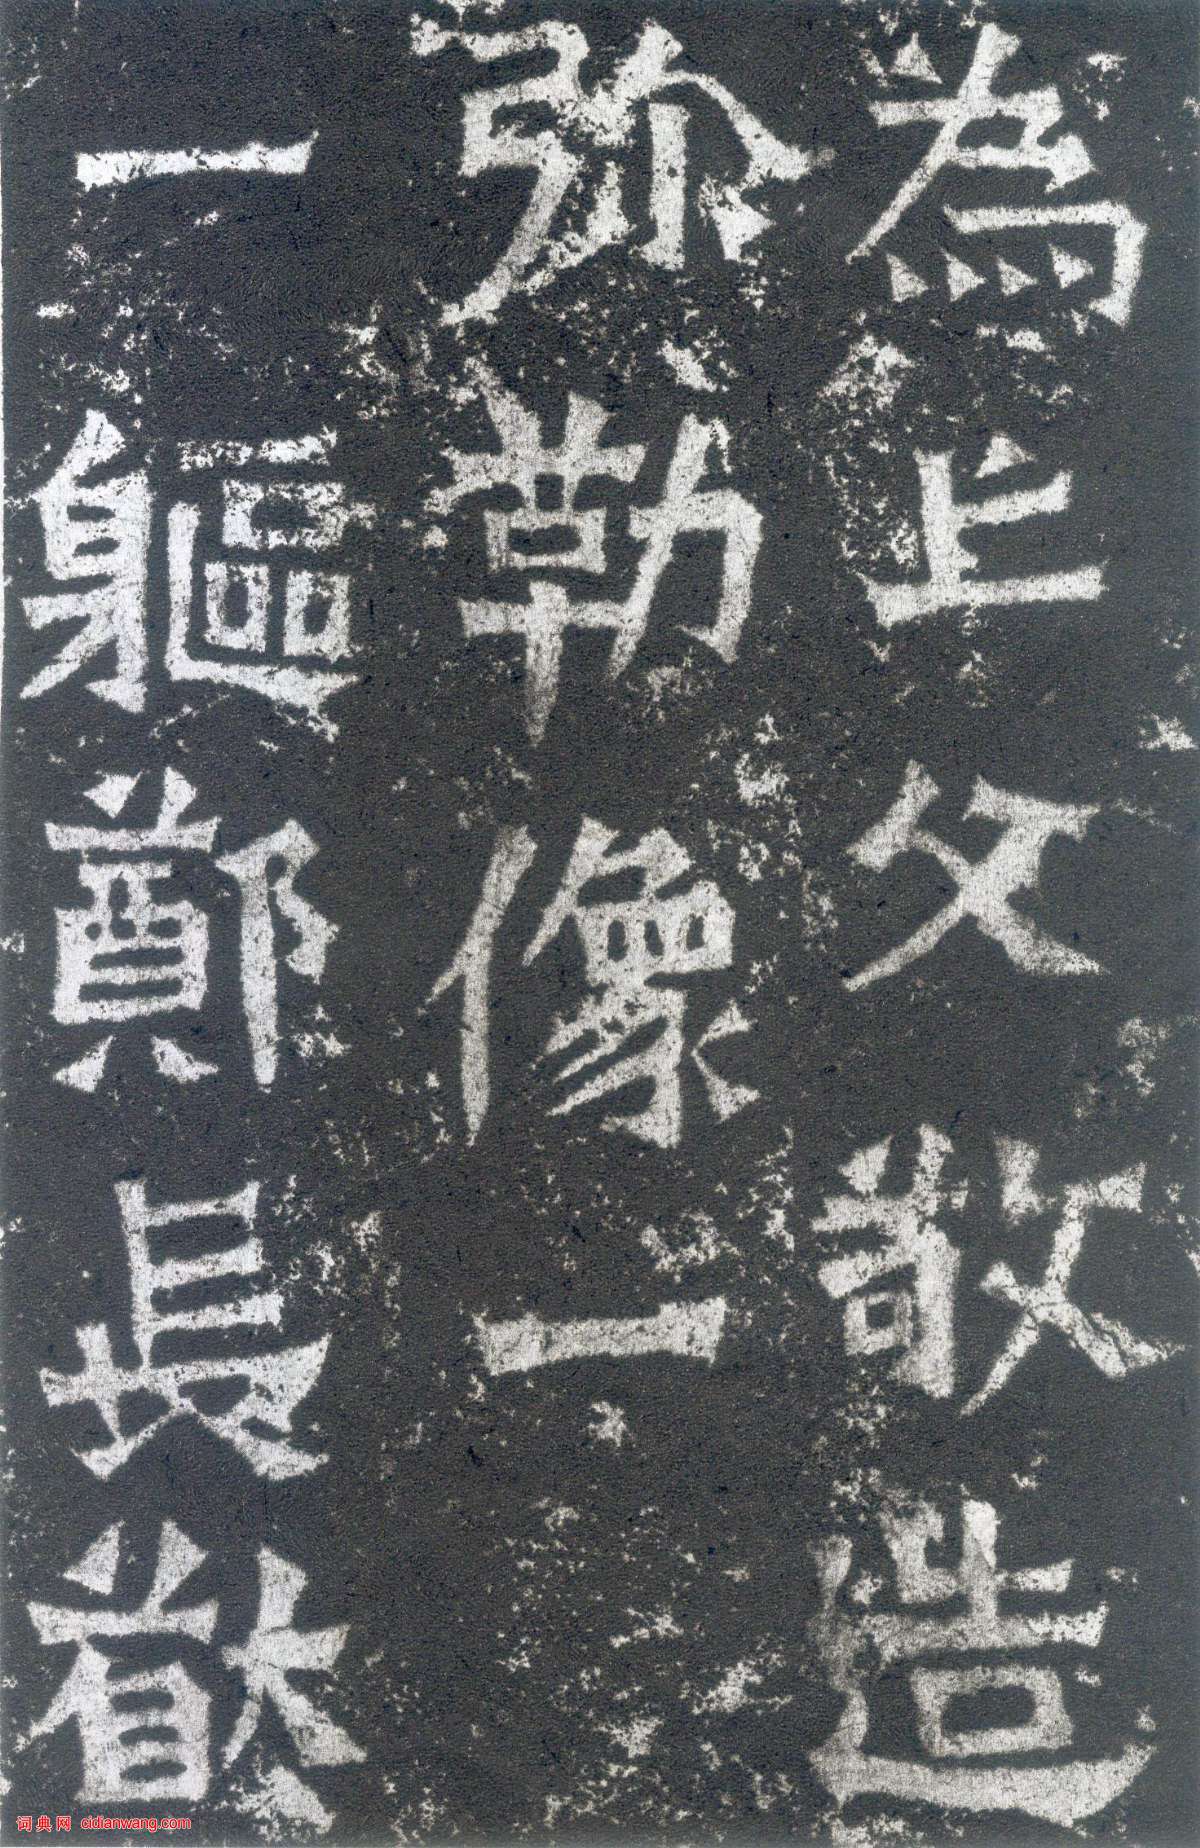 為亡父敬造
弥勒像一
一軀鄭長猷
词典网 cidianwang.com